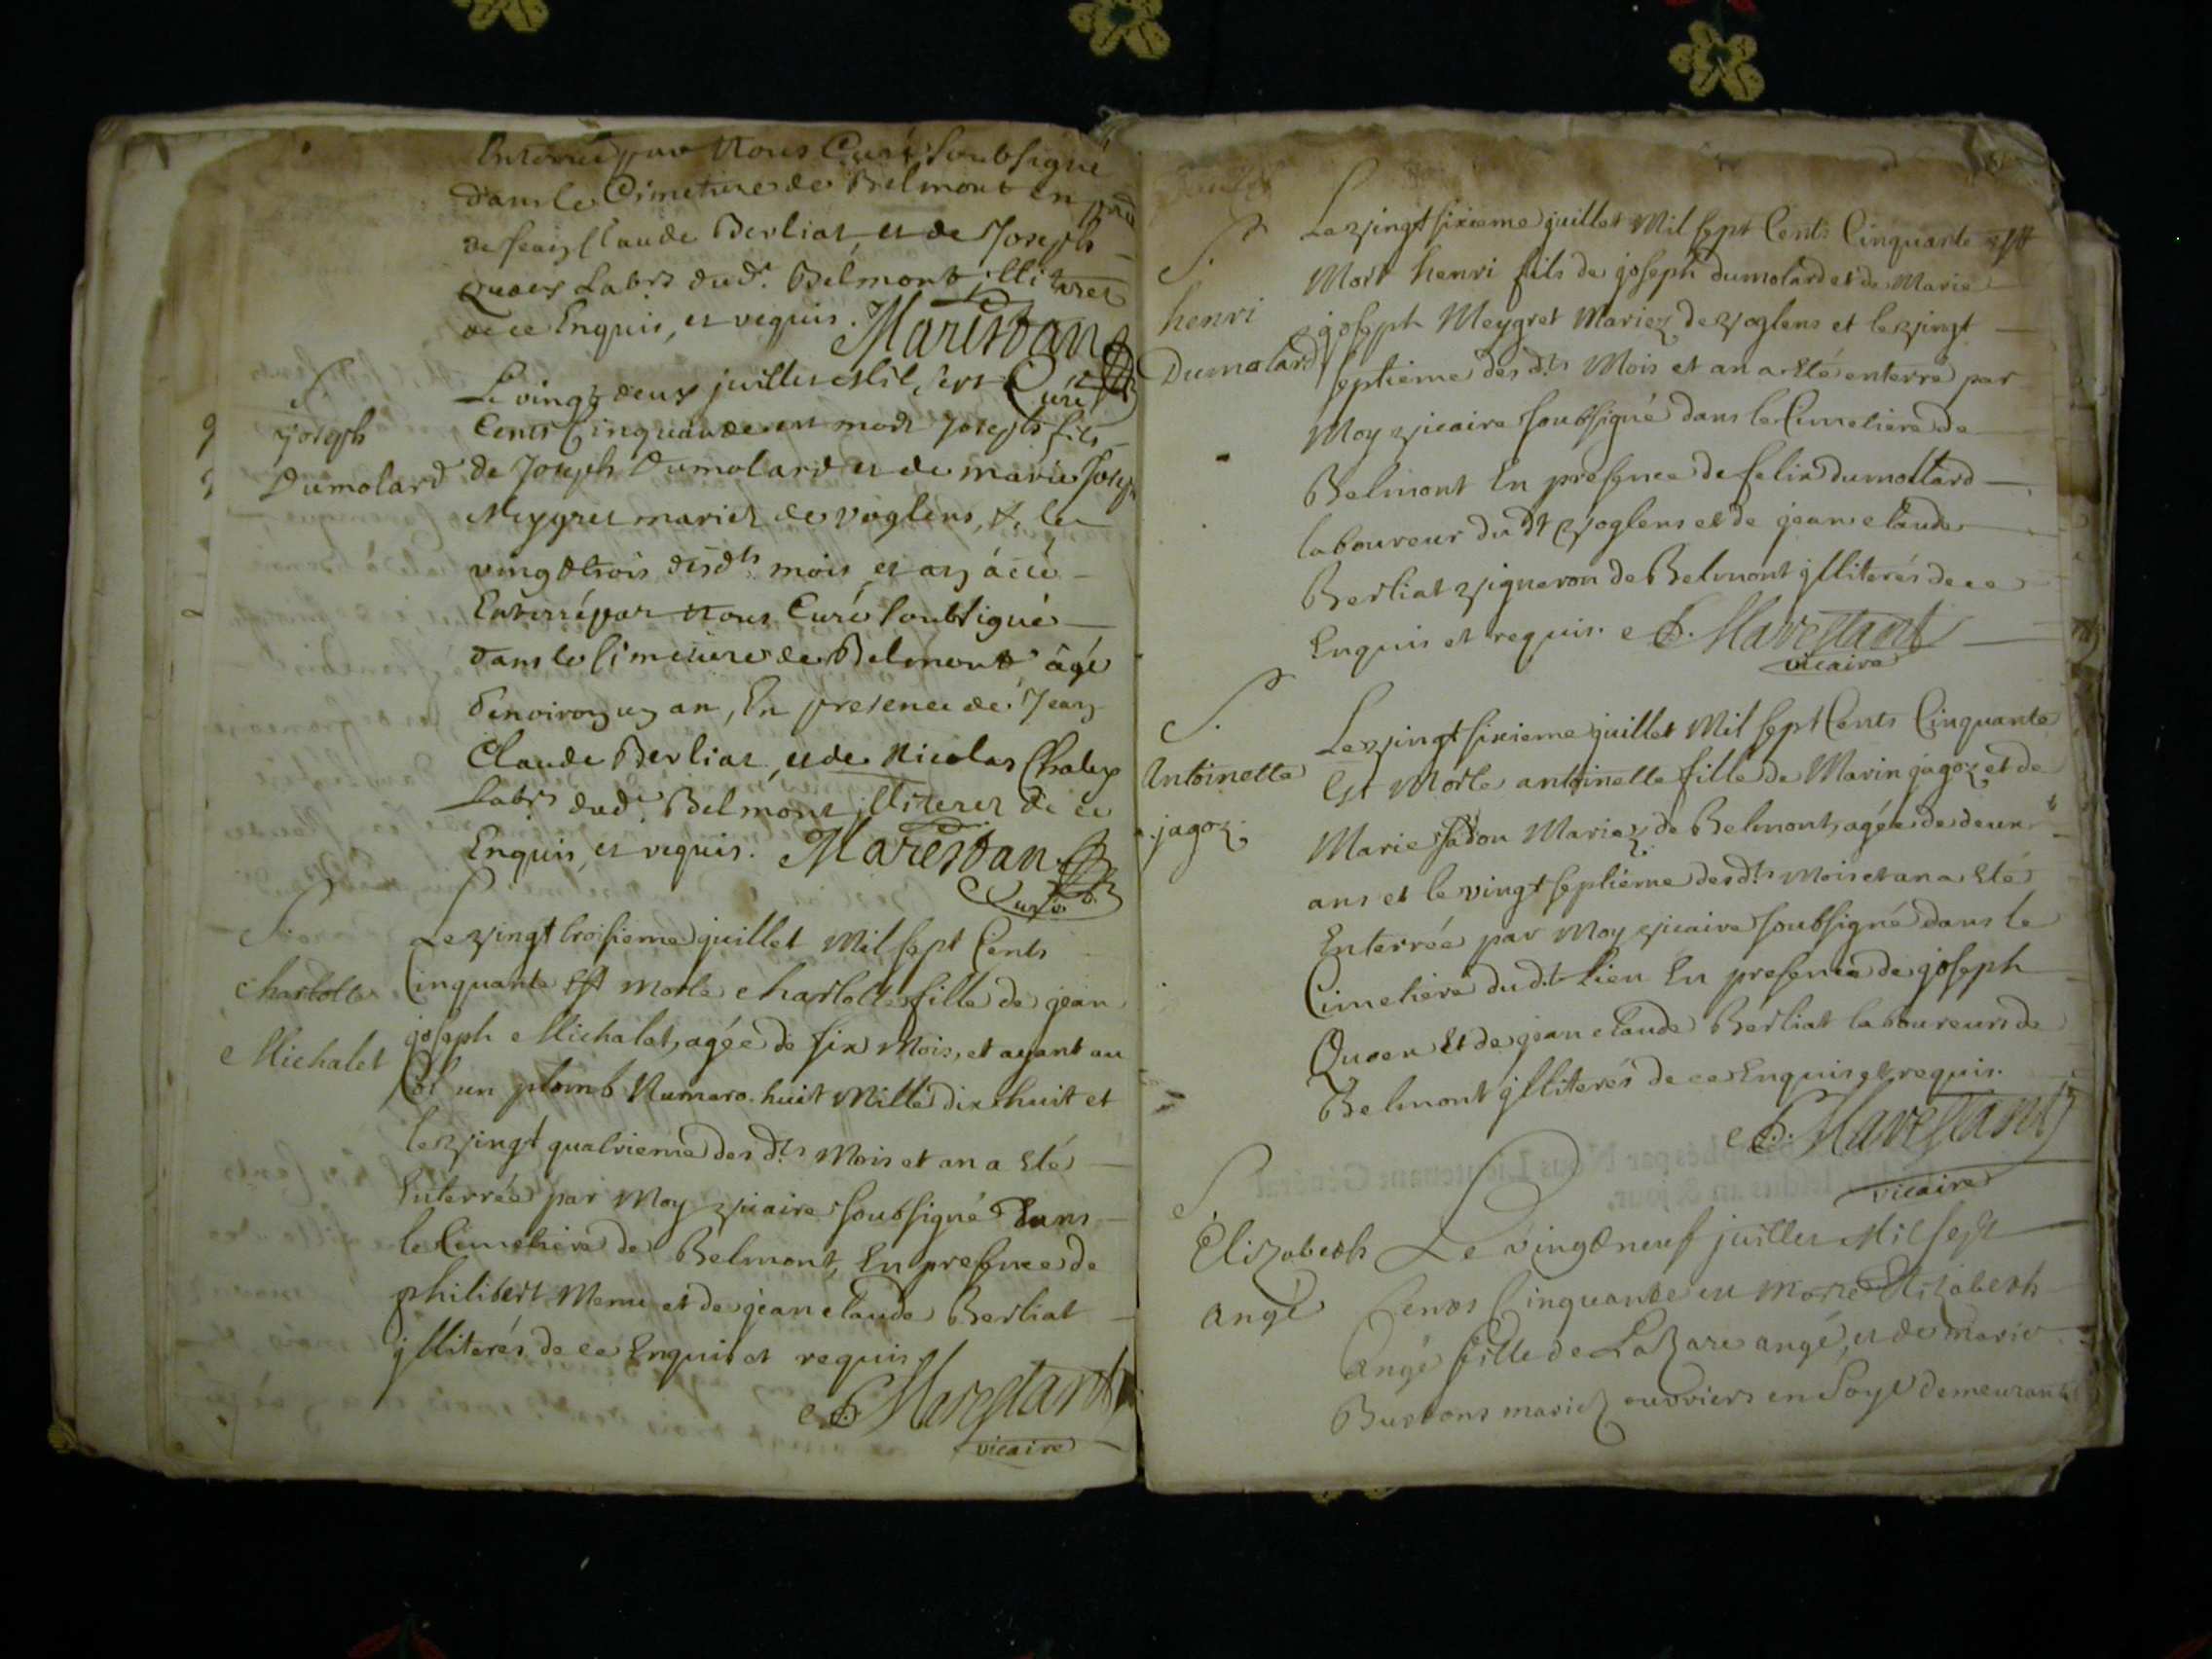 Enterré par Nous Curé soubsigné
dans le Cimetiere de Belmont en
de Jean Claude Berliat, et de Joseph
Labrs dud.t Belmont illiterez
de ce Enquis, et requis. Marestan
Curé
S.
Joseph
Dumolard
Le vingt deux juillet Mil sept
Cents Cinquante est mort Joseph fils
de Joseph Dumolard et de marie Joseph
Meygret mariez de voglens, & le
vingt trois desdts mois et an à été
Enterré par Nous Curé soubsigné
dans le Cimetiere de Belmont, âgé
d'environ un an, En presence de Jean
Claude Berliat, et de Nicolas
Labrs dud.t Belmont illiterez de ce
Enquis, et requis. Marestan
Curé
S.
Charlotte
Michalet
Le vingt troisieme juillet Mil sept Cents
Cinquante Est morte Charlotte fille de jean
joseph Michalet, agée de six Mois, et ayant au
Col un plomb Numero huit Mille dix huit et
le vingt quatrieme des d.ts Mois et an a Eté
Enterrée par Moy vicaire soubsigné Dans
le Cimetiere de Belmont, En presence de
philibert Meme et de jean claude Berliat
jlliterés de ce Enquis et requis
Marestant
vicaire
S.
henri
Dumolard
Le vingt sixieme juillet Mil sept Cents Cinquante est
Mort henri fils de joseph dumolard et de Marie
joseph Meygret Mariez de voglens et le vingt
septieme des d.ts Mois et an a Eté enterré par
Moy vicaire soubsigné dans le Cimetiere de
Belmont En presence de felix dumollard
laboureur du dt voglens et de jean claude
Berliat vigneron de Belmont jlliterés de ce
Enquis et requis. Marestant
vicaire
S.
Antoinette
jagoz
Le vingt sixieme juillet Mil sept Cents Cinquante
Est Morte antoinette fille de Marin jagoz et de
Marie Mariez de Belmont, agée de deux
ans et le vingt septieme des d.ts Mois et an a Eté
Enterrée par Moy vicaire soubsigné dans le
Cimetiere dud.t Lieu En presence de joseph
Et de jean claude Berliat laboureurs de
Belmont jlliterés de ce Enquis et requis.
Marestant
vicaire
S.
Elizabeth
Angé
Le vingt neuf juillet Mil sept
Cents Cinquante est morte Elizabeth
Angé fille de Lazare angé, et de marie
mariez ouvriers en Soye demeurants